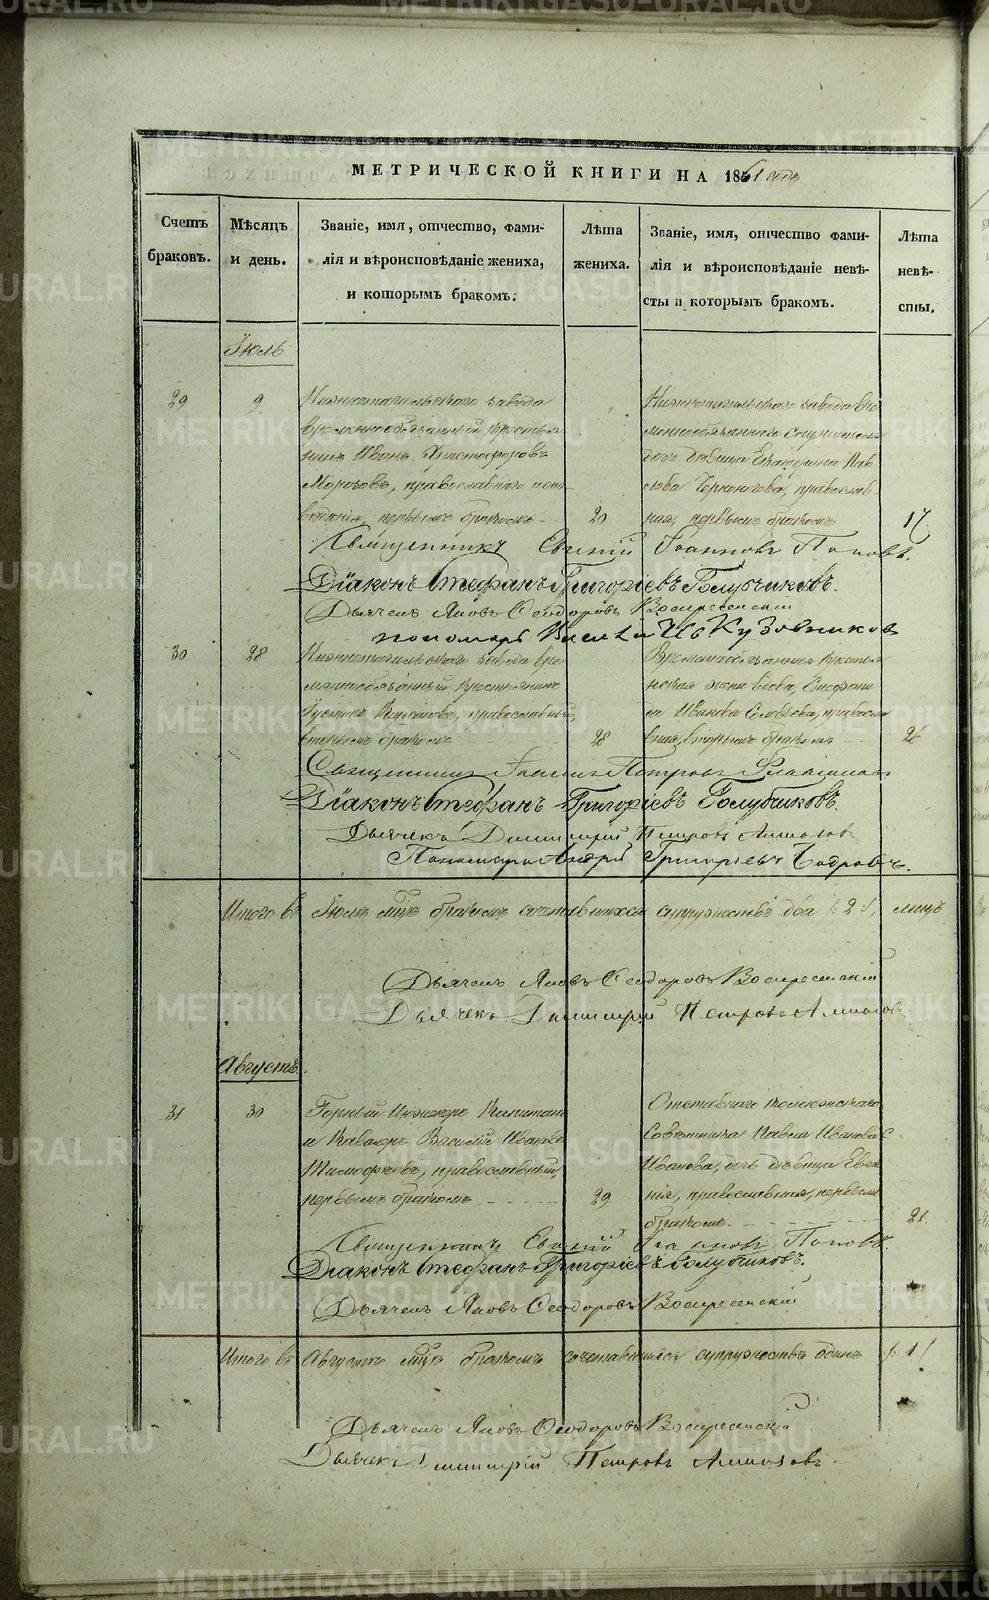 МЕТРИЧЕСКОЙ КНИГИ НА 1861 годъ
Счетъ браковъ.
Мѣсяцъ и день.
Званіе, имя, отчество, фами-
лія и вѣроисповѣданіе жениха,
и которымъ бракомъ.
Лѣта жениха.
Званіе, имя, отчество фами-
лія и вѣроисповѣданіе невѣ-
сты и которымъ бракомъ.
Лѣта
невѣ-
сты.
Іюль
29
9
Нижнетагильскаго завода
временнообязанный крестья
нинъ Иванъ Христофоровъ
Морозовъ, православнаго испо
вѣданія, первымъ бракомъ
20
Нижнетагильскаго завода вре
меннообязаннаго
дочь дѣвица Екатерина Пав
лова, православ
ная, первымъ бракомъ
17.
Священникъ Евгеній Іоанновъ Поповъ.
Діаконъ Стефанъ Григоріевъ Голубчиковъ.
Дьячекъ Яковъ Ѳеодоровъ Воскресенскій
пономарь Василій Кузовниковъ
30
28
Нижнетагильскаго завода вре
меннообязанный крестьянинъ
православный,
вторымъ бракомъ
28
Временнообязанная крестья
нская жена вдова,
Иванова православ
ная, вторымъ бракомъ
26
Священникъ Іоаннъ Петровъ
Діаконъ Стефанъ Григоріевъ Голубчиковъ.
Дьячекъ Димитрій Петровъ
Пономарь Андрей Григорьевъ Бобровъ.
Итого въ Іюлѣ мцѣ бракомъ сочетавшихся супружествъ два /:2:/ лицъ
Дьячекъ Яковъ Ѳеодоровъ Воскресенскій
Дьячекъ Димитрій Петровъ
Августъ.
31
30
Горный Инженеръ Капитанъ
и Кавалеръ Василій Ивановъ
Тимофеевъ, православный,
первымъ бракомъ
29
Отставнаго Коллежскаго
Совѣтника Павла Иванова
Иванова, дочь дѣвица Евге
нія, православная, первымъ
бракомъ.
21.
Священникъ Евгеній Іоанновъ Поповъ.
Діаконъ Стефанъ Григоріевъ Голубчиковъ.
Дьячекъ Яковъ Ѳеодоровъ Воскресенскій
Итого въ Августѣ мцѣ бракомъ сочетавшихся супружествъ одинъ /:1/
Дьячекъ Яковъ Ѳеодоровъ Воскресенскій
Дьячекъ Димитрій Петровъ
METRIKI.GASO-URAL.RU